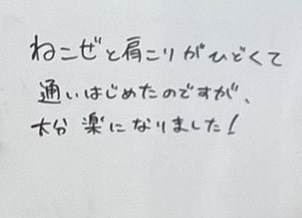 ねこぜと肩こりがひどくて
通いはじめたのですが、
大分楽になりました!